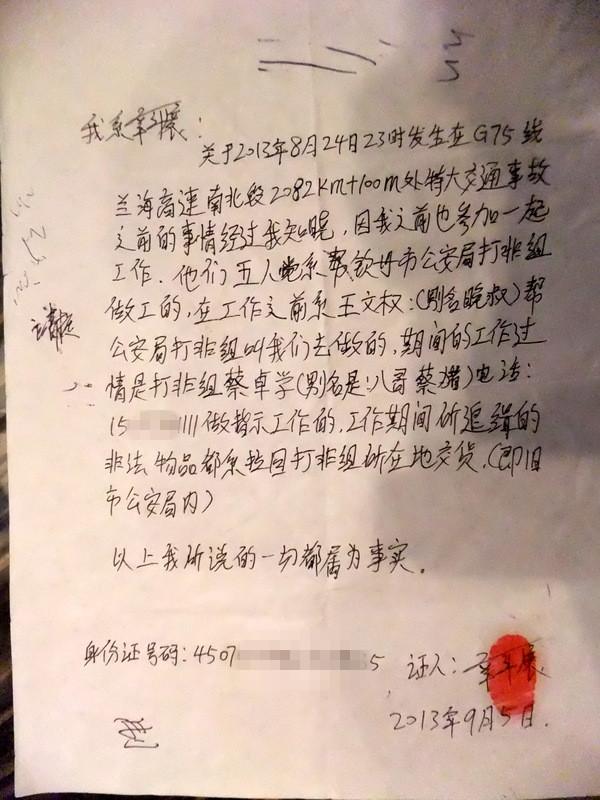 我系章年展：
关于2013年8月24日23时发生在G75线
兰海高速南北段2082km+100m处特大交通事故
之前的事情经过我知晓，因我之前也参加一起
工作．他们五人系帮钦州市公安局打非组
做工的，在工作之前系王文权：(别名晚叔)帮
公安局打非组叫我们去做的，期间的工作过
情是打非组蔡卓学(别名是:八哥蔡猪)电话：
15 1111做指示工作的，工作期间所追缉的
非法物品都系拉回打非组所在地交货，(即旧
市公安局内)
以上我所说的一切都属为事实。
身份证号码：4507 5
证人：章年展
2013年9月5日．